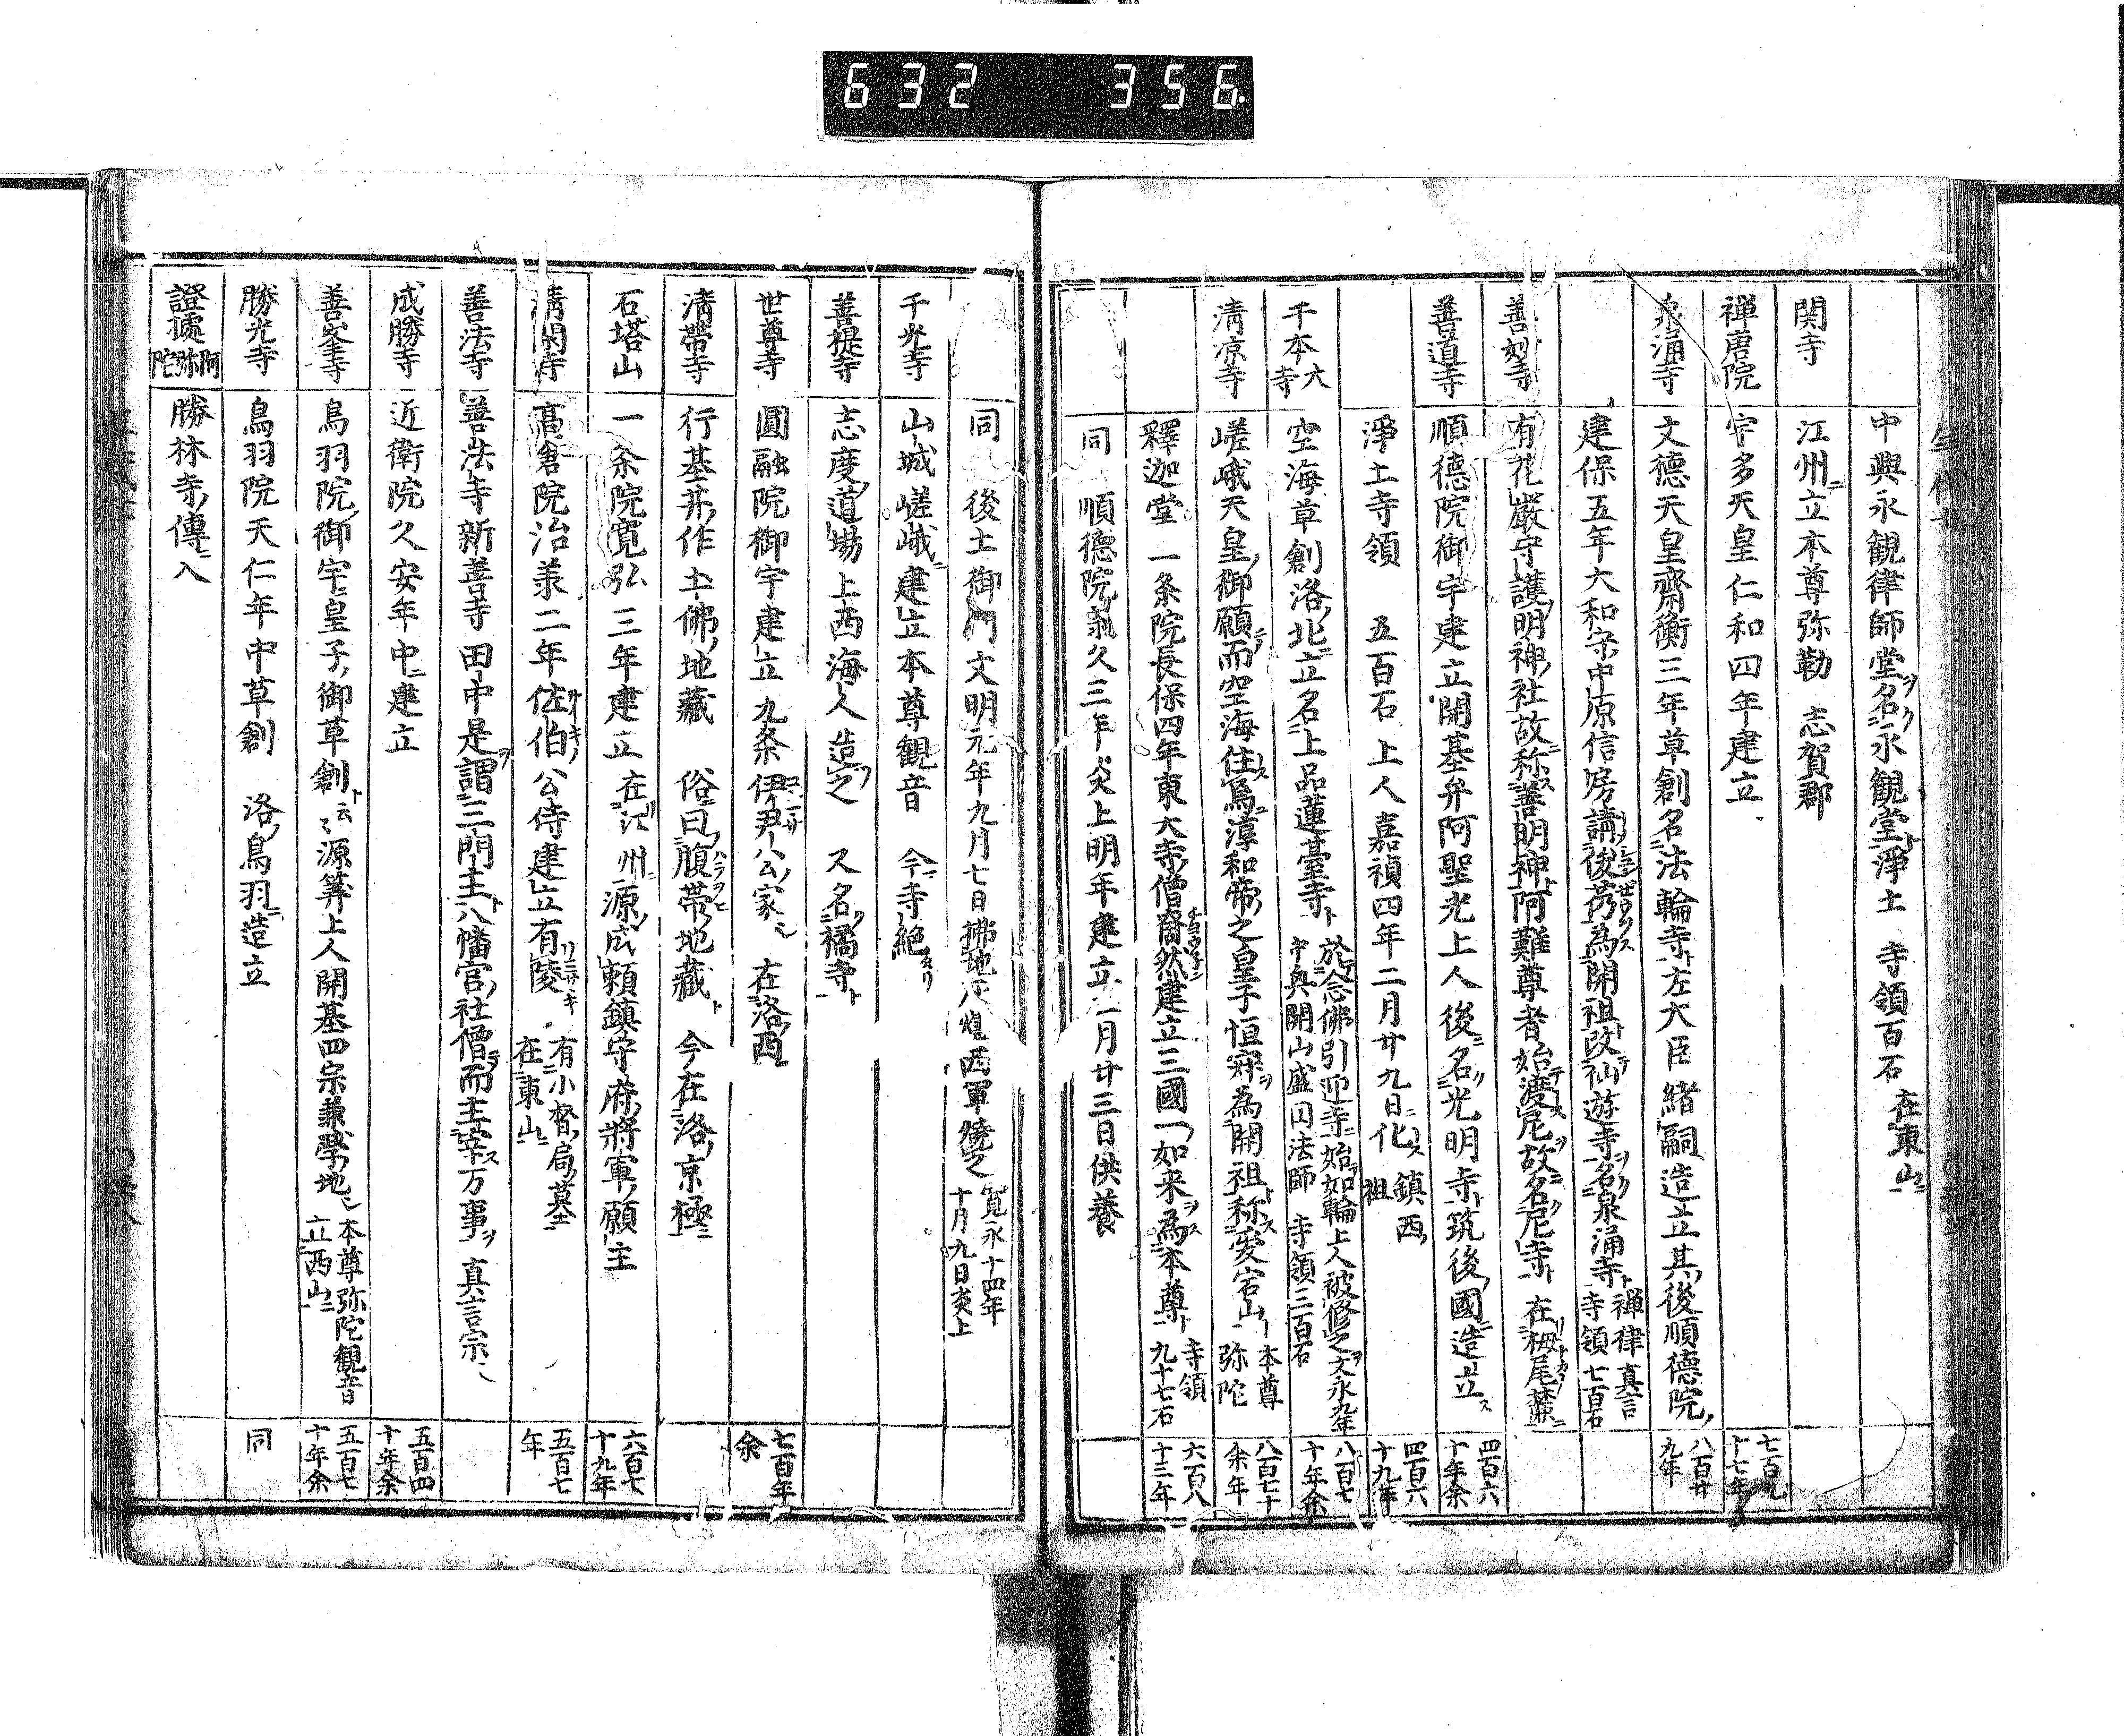 632 356
中興永観律師堂ヲ名ク永観堂ト淨土 寺領百石 在東山ニ
関寺 江州ニ立本尊弥勒 志賀郡
禅唐院 宇多天皇仁和四年建立 七百九十七年
泉涌寺 文徳天皇齋衡三年草創名法輪寺ト左大臣緒嗣造立其後順德院 八百廿九年
建保五年大和守中原信房請俊芿為開祖改仙遊寺ヲ名ク泉涌寺ト 禅律真言 寺領七百石
善妙寺 有花嚴守護明神社故ニ称ス善明神ト阿難尊者始テ渡ス尼ヲ故ニ名ク尼寺ト 在栂尾麓ニ
善道寺 順德院御宇建立開基弁阿聖光上人後ニ名ク光明寺ト筑後國ニ造立ス 四百六十年余
淨土寺領 五百石 上人嘉禎四年二月廿九日ニ化ス 鎮西祖 四百六十九年
千本大寺 空海草創洛北ニ立名上品蓮臺寺ト 於念佛引迎寺ニ始テ如輪上人被修之ヲ文永九年 中興開山盛囚法師 寺領三百石 八百七十年余
清凉寺 嵯峨天皇御願ニテ而空海住ス爲淳和帝之皇子恒寂ヲ為開祖ト称ス愛宕山ト 本尊弥陀 八百七十余年
釋迦堂 一条院長保四年東大寺僧奝然建立三國一ノ如来ヲ為ス本尊ト 寺領九十七石 六百八十三年
同 順德院承久三年炎上明年建立 二月廿三日供養
同 後土御門文明元年九月七日拂地灰燼西軍燒之 寛永十四年十月九日炎上
千光寺 山城嵯峨ニ建立本尊観音 今ニ寺絶タリ
善提寺 志度道塲上西海人造之ヲ 又名ク橘寺ト
世尊寺 圓融院御宇建立 九条伊尹公家ニ 在洛西 七百年余
清帶寺 行基并作土佛地藏 俗曰腹帶地藏ト 今在洛京極ニ
石塔山 一条院寛弘三年建立 在江州ニ源成頼鎮守府將軍願主 六百七十九年
清閑寺 髙倉院治羕二年佐伯公侍建立有陵 有小督局墓 在東山ニ 五百七年
善法寺 善法寺新善寺田中是ヲ謂三門主ト八幡宮社僧ニテ而主宰ス万事ヲ 真言宗
成勝寺 近衛院久安年中ニ建立 五百四十年余
善峯寺 鳥羽院御宇皇子御草創ト云々源筭上人開基四宗兼學地 本尊弥陀観音 立西山ニ 五百七十年余
勝光寺 鳥羽院天仁年中草創 洛鳥羽ニ造立 同
證據阿弥陀 勝林寺傳ニ入